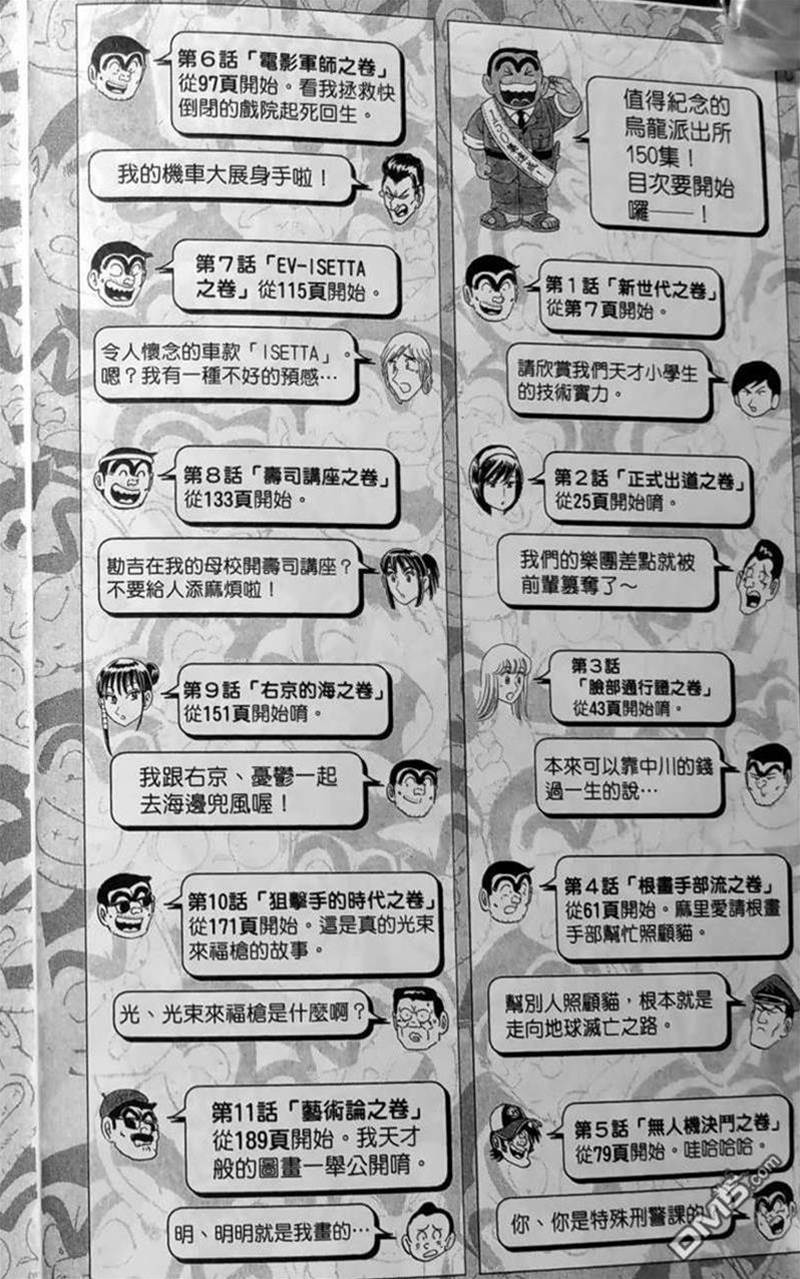 值得紀念的
烏龍派出所
150集！
目次要開始
囉——！
第1話「新世代之卷」
從第7頁開始。
請欣賞我們天才小學生
的技術實力。
第2話「正式出道之卷」
從25頁開始唷。
我們的樂團差點就被
前輩篡奪了～
第3話
「臉部通行證之卷」
從43頁開始唷。
本來可以靠中川的錢
過一生的說…
第4話「根畫手部流之卷」
從61頁開始。麻里愛請根畫
手部幫忙照顧貓。
幫別人照顧貓，根本就是
走向地球滅亡之路。
第5話「無人機決鬥之卷」
從79頁開始。哇哈哈哈。
你、你是特殊刑警課的
第6話「電影軍師之卷」
從97頁開始。看我拯救快
倒閉的戲院起死回生。
我的機車大展身手啦！
第7話「EV-ISETTA
之卷」從115頁開始。
令人懷念的車款「ISETTA」。
嗯？我有一種不好的預感…
第8話「壽司講座之卷」
從133頁開始。
勘吉在我的母校開壽司講座？
不要給人添麻煩啦！
第9話「右京的海之卷」
從151頁開始唷。
我跟右京、憂鬱一起
去海邊兜風喔！
第10話「狙擊手的時代之卷」
從171頁開始。這是真的光束
來福槍的故事。
光、光束來福槍是什麼啊？
第11話「藝術論之卷」
從189頁開始。我天才
般的圖畫一舉公開唷。
明、明明就是我畫的…
DM5.com